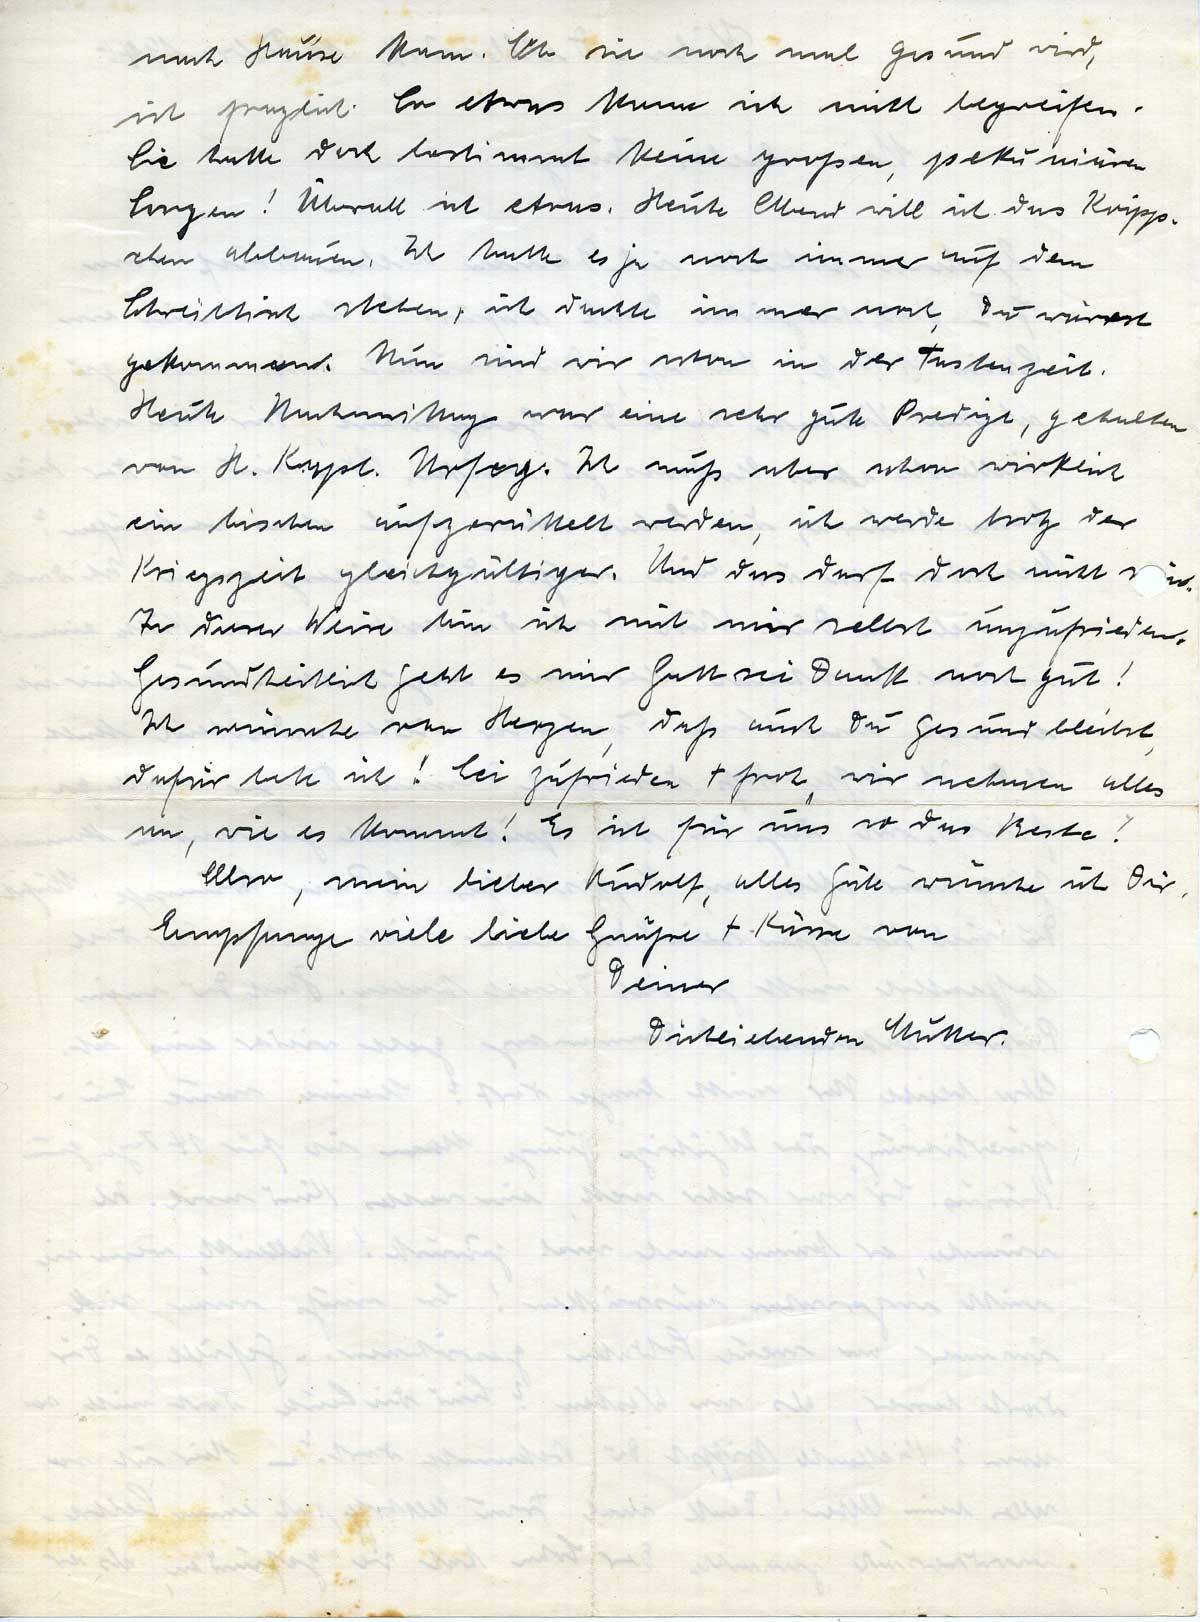 nach Hause kam. Ob sie noch mal gesund wird,
ist fraglich. So etwas kann ich nicht begreifen.
Sie hatte doch bestimmt keine großen, pekuniären
Sorgen! Überall ist etwas. Heute Abend will ich das Kripp-
chen abbauen. Ich hatte es ja noch immer auf dem
Schreibtisch stehen, ich dachte immer noch, Du wärest
gekommen. Nun sind wir schon in der Fastenzeit.
Heute Nachmittag war eine sehr gute Predigt, gehalten
von H. Kapl. Ich muß aber schon wirklich
ein bischen aufgerüttelt werden, ich werde trotz der
Kriegszeit gleichgültiger. Und das darf doch nicht sein.
In dieser Weise bin ich mit mir selbst unzufrieden.
Gesundheitlich geht es mir Gott sei Dank noch gut!
Ich wünsche von Herzen, daß auch Du gesund bleibst,
dafür bete ich! Sei zufrieden + froh, wir nehmen alles
an, wie es kommt! Es ist für uns so das Beste!
Also, mein lieber Rudolf, alles Gute wünsche ich Dir.
Empfange viele liebe Grüße + Küsse von
Deiner
Dichliebenden Mutter.